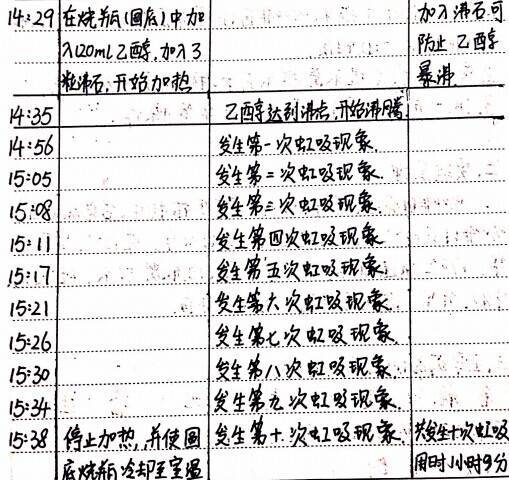 14:29 在烧瓶(圆底)中加 加入沸石可
入120ml乙醇,加入3 防止乙醇
粒沸石,开始加热 暴沸.
14:35 乙醇达到沸点,开始沸腾
14:56 发生第一次虹吸现象.
15:05 发生第二次虹吸现象.
15:08 发生第三次虹吸现象.
15:11 发生第四次虹吸现象
15:17 发生第五次虹吸现象
15:21 发生第六次虹吸现象.
15:26 发生第七次虹吸现象.
15:30 发生第八次虹吸现象.
15:34 发生第九次虹吸现象.
15:38 停止加热,并使圆 发生第十次虹吸现象. 共发生十次虹吸
底烧瓶冷却至室温 用时1小时9分